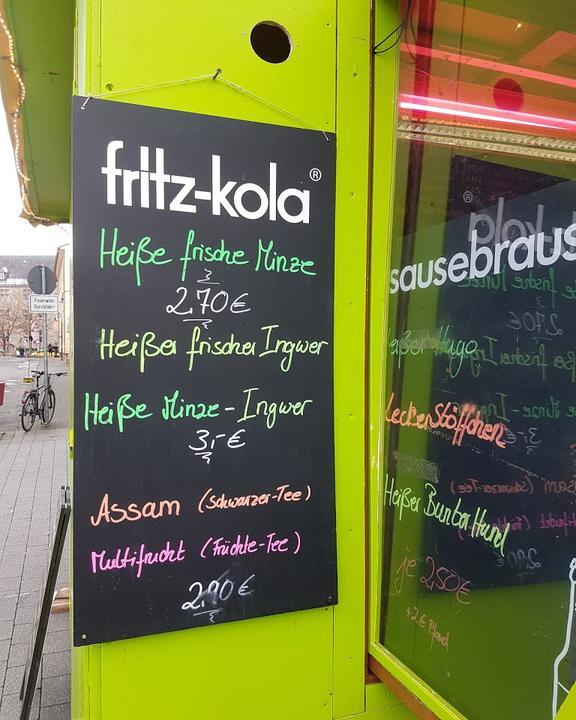 fritz-kola®
Heiße frische Minze
2,70€
Heißer frischer Ingwer
Heiße Minze-Ingwer
3,-€
Assam (Schwarzer-Tee)
Multifrucht (Früchte-Tee)
2,90€
Feuerwehr
Durchfahrt
sausebraus
Hugo
Lecker Stöffchen
Heißer Bunter Hund
je 2,50€
+2€ Pfand